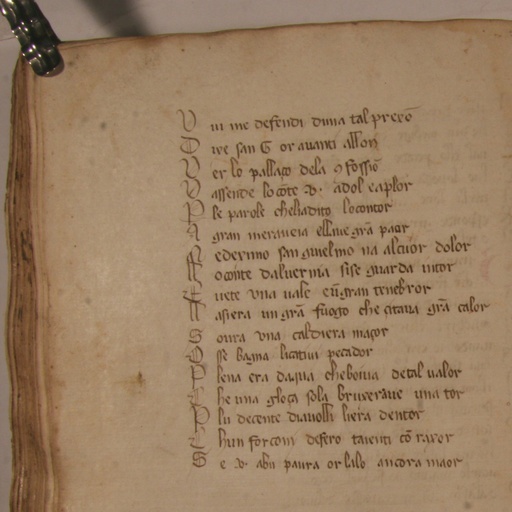 V ui me defendi duna tal prexō
D ixe san G or auanti allon
V er lo pallaço dela ꝯfossiō
V assende lo cōte .V. adol e aplor
P le parole che li a dito lo contor
A gran meraueia ell iue grā paor
N e dernno san guielmo na alcuor dolor
E o conte daluernia si se guarda intor
E uete una uale eū gran tenebror
E asiera un grā fuogo che çitaua grā calor
S oura una caldiera maçor
O sse bagna li catiui pecador
P lena era daqua che boiua de tal ualor
C he una gloça sola bruxeraue una tor
P lu de cente diauolli li era dentor
C hun forconi de fero taienti cō raxor
S e .V. abu paura or la lo ancora maor